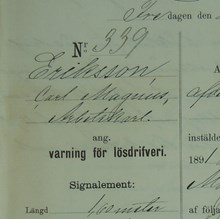 Tre dagen den
Nr 339
Eriksson,
Carl Magnus,
Arbetskarl.
ang.
varning för lösdrifveri.
Signalement:
Längd
A
afde
instälde
189
af följa